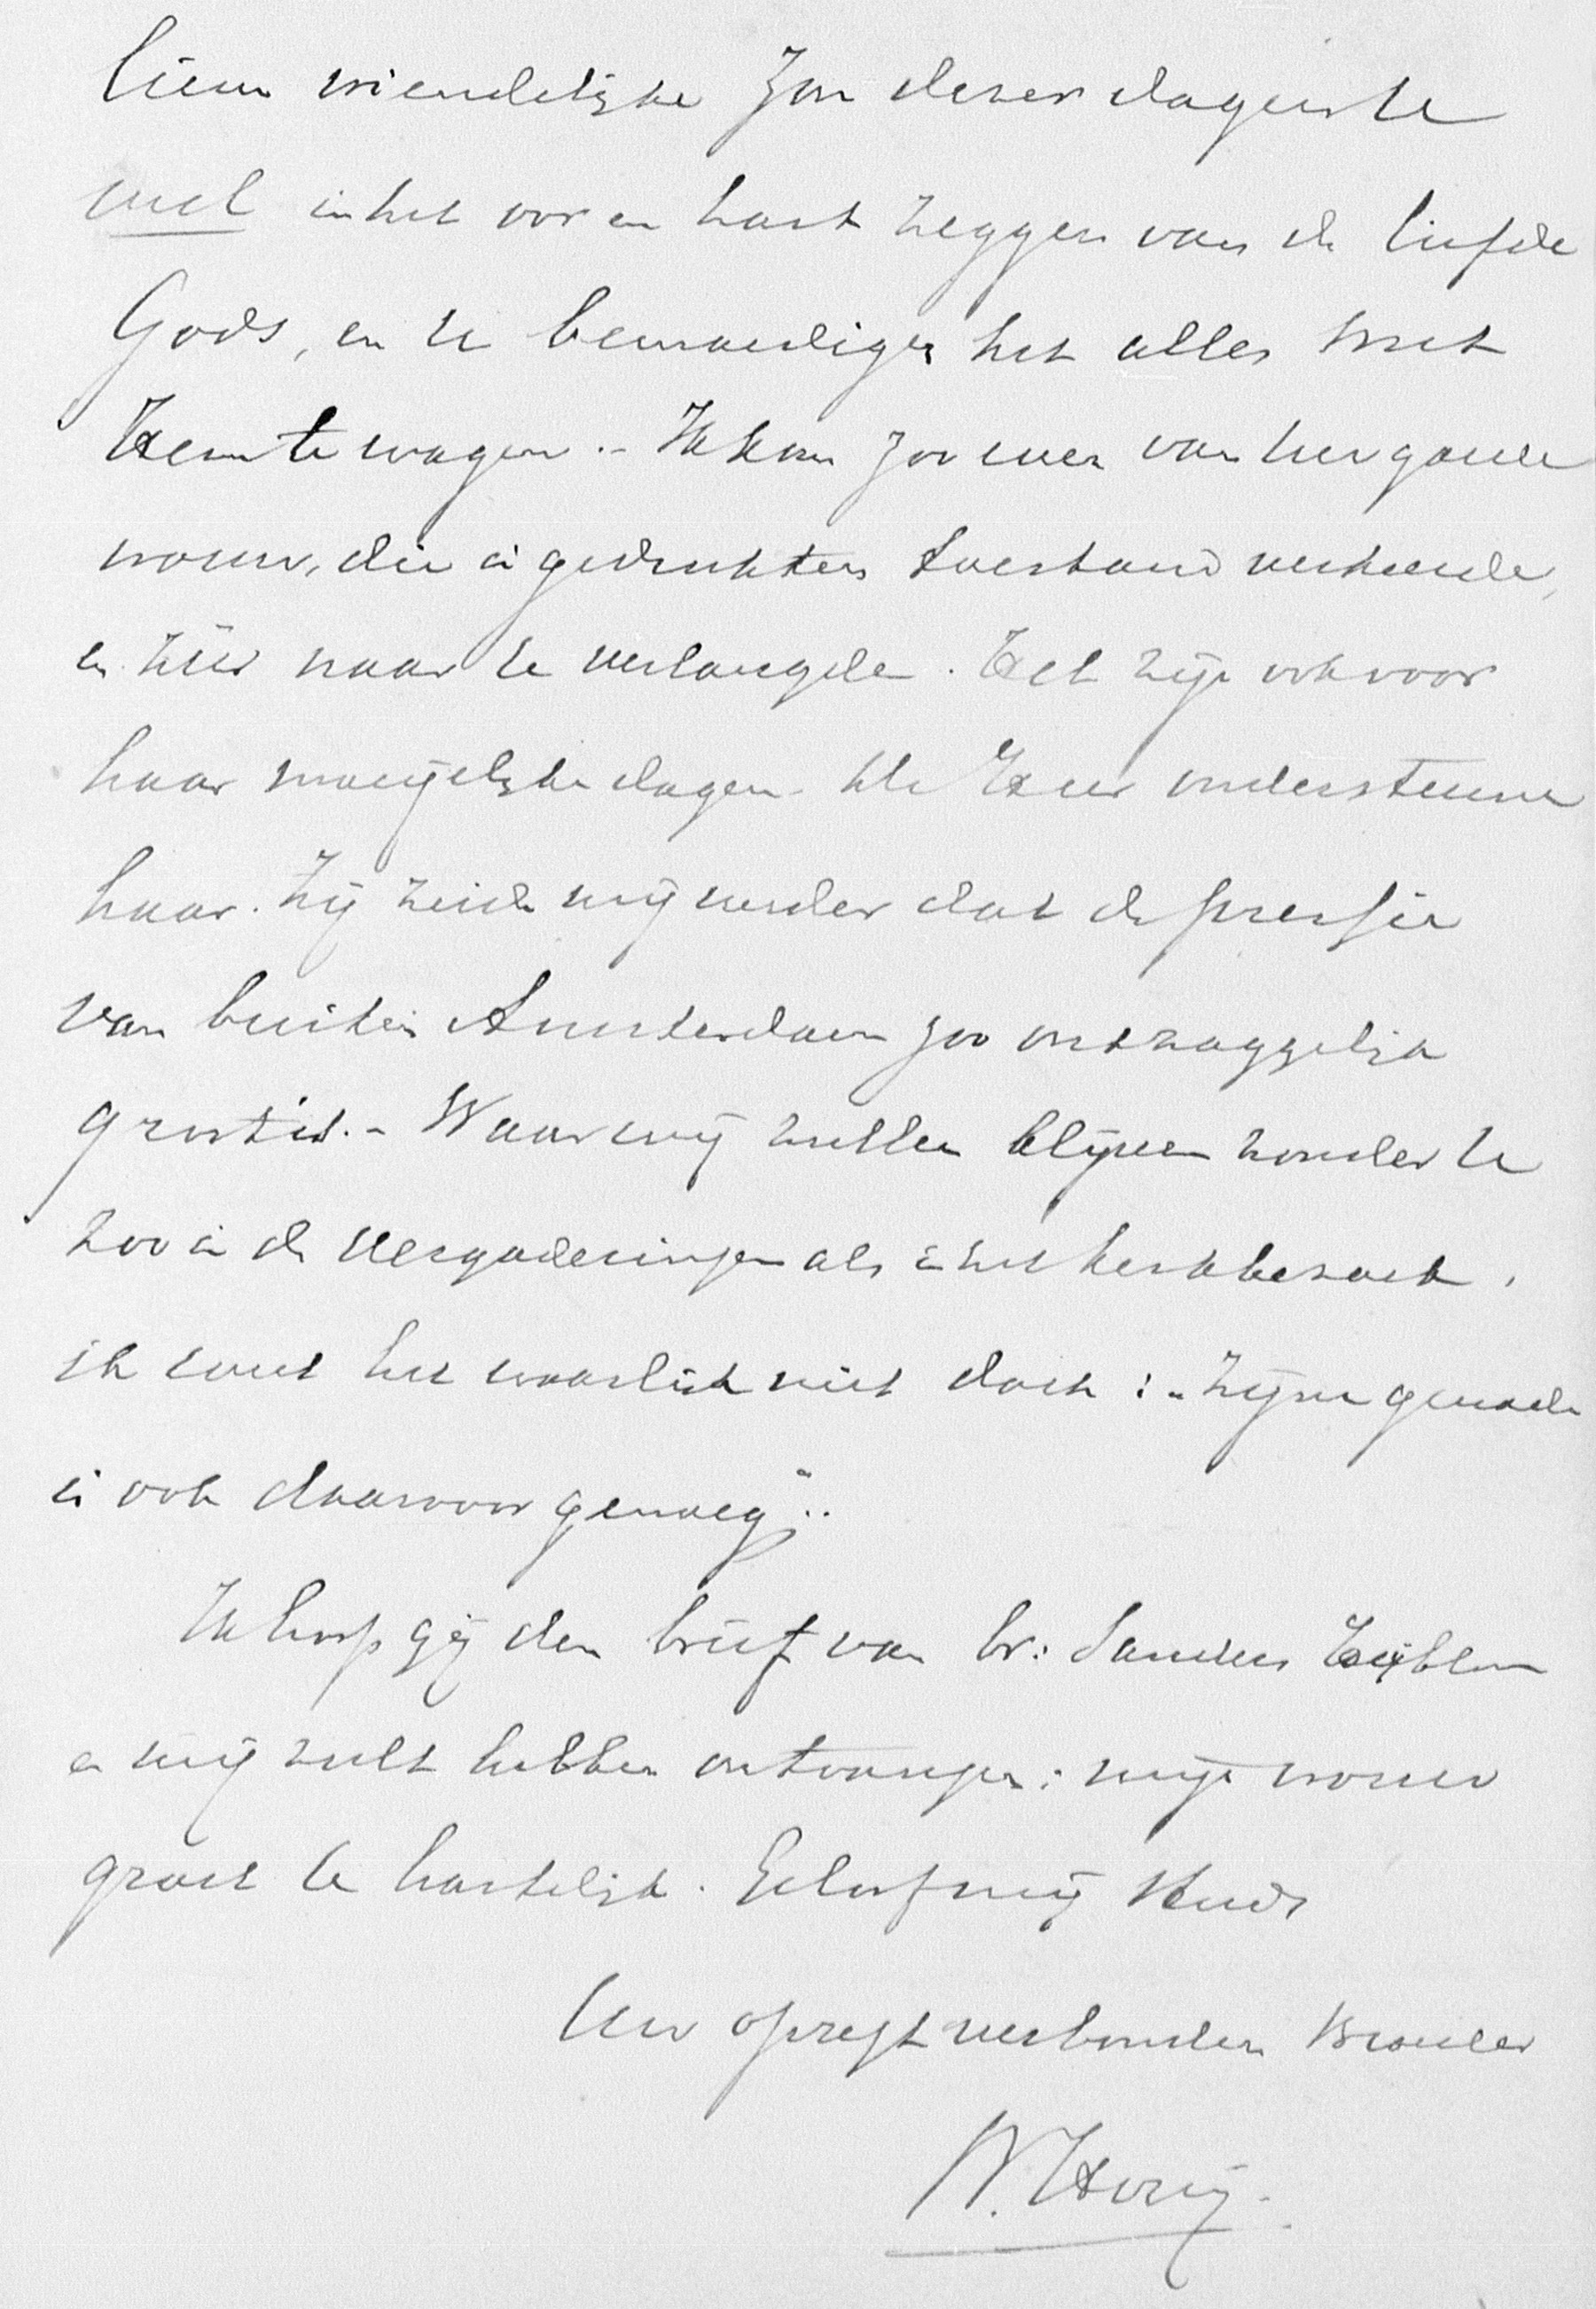 lieve vriendelijke zon dezer dagen U
veel in het oor en hart zeggen van de liefde
Gods, en U bemoedigen het alles met
Hem te wagen. - Ik kom zoo even van Uw goede
vrouw, die in gedrukten toestand verkeerde,
en zéér naar U verlangde. Het zijn ook voor
haar moeijelijke dagen. de Heer ondersteune
haar. Zij zeide mij verder dat de pressie
van buiten Amsterdam zoo ontzaggelijk
groot is. - Waar wij zullen blijven zonder U
zoo in de Vergaderingen als in het kerkbezoek,
ik weet het waarlijk niet doch: "Zijne genade
is ook daarvoor genoeg".
Ik hoop gij den brief van br: Sanders
en mij zult hebben ontvangen: mijn vrouw
groet U hartelijk. Geloof mij steeds
Uw opregt verbonden Broeder
W. Hovy.